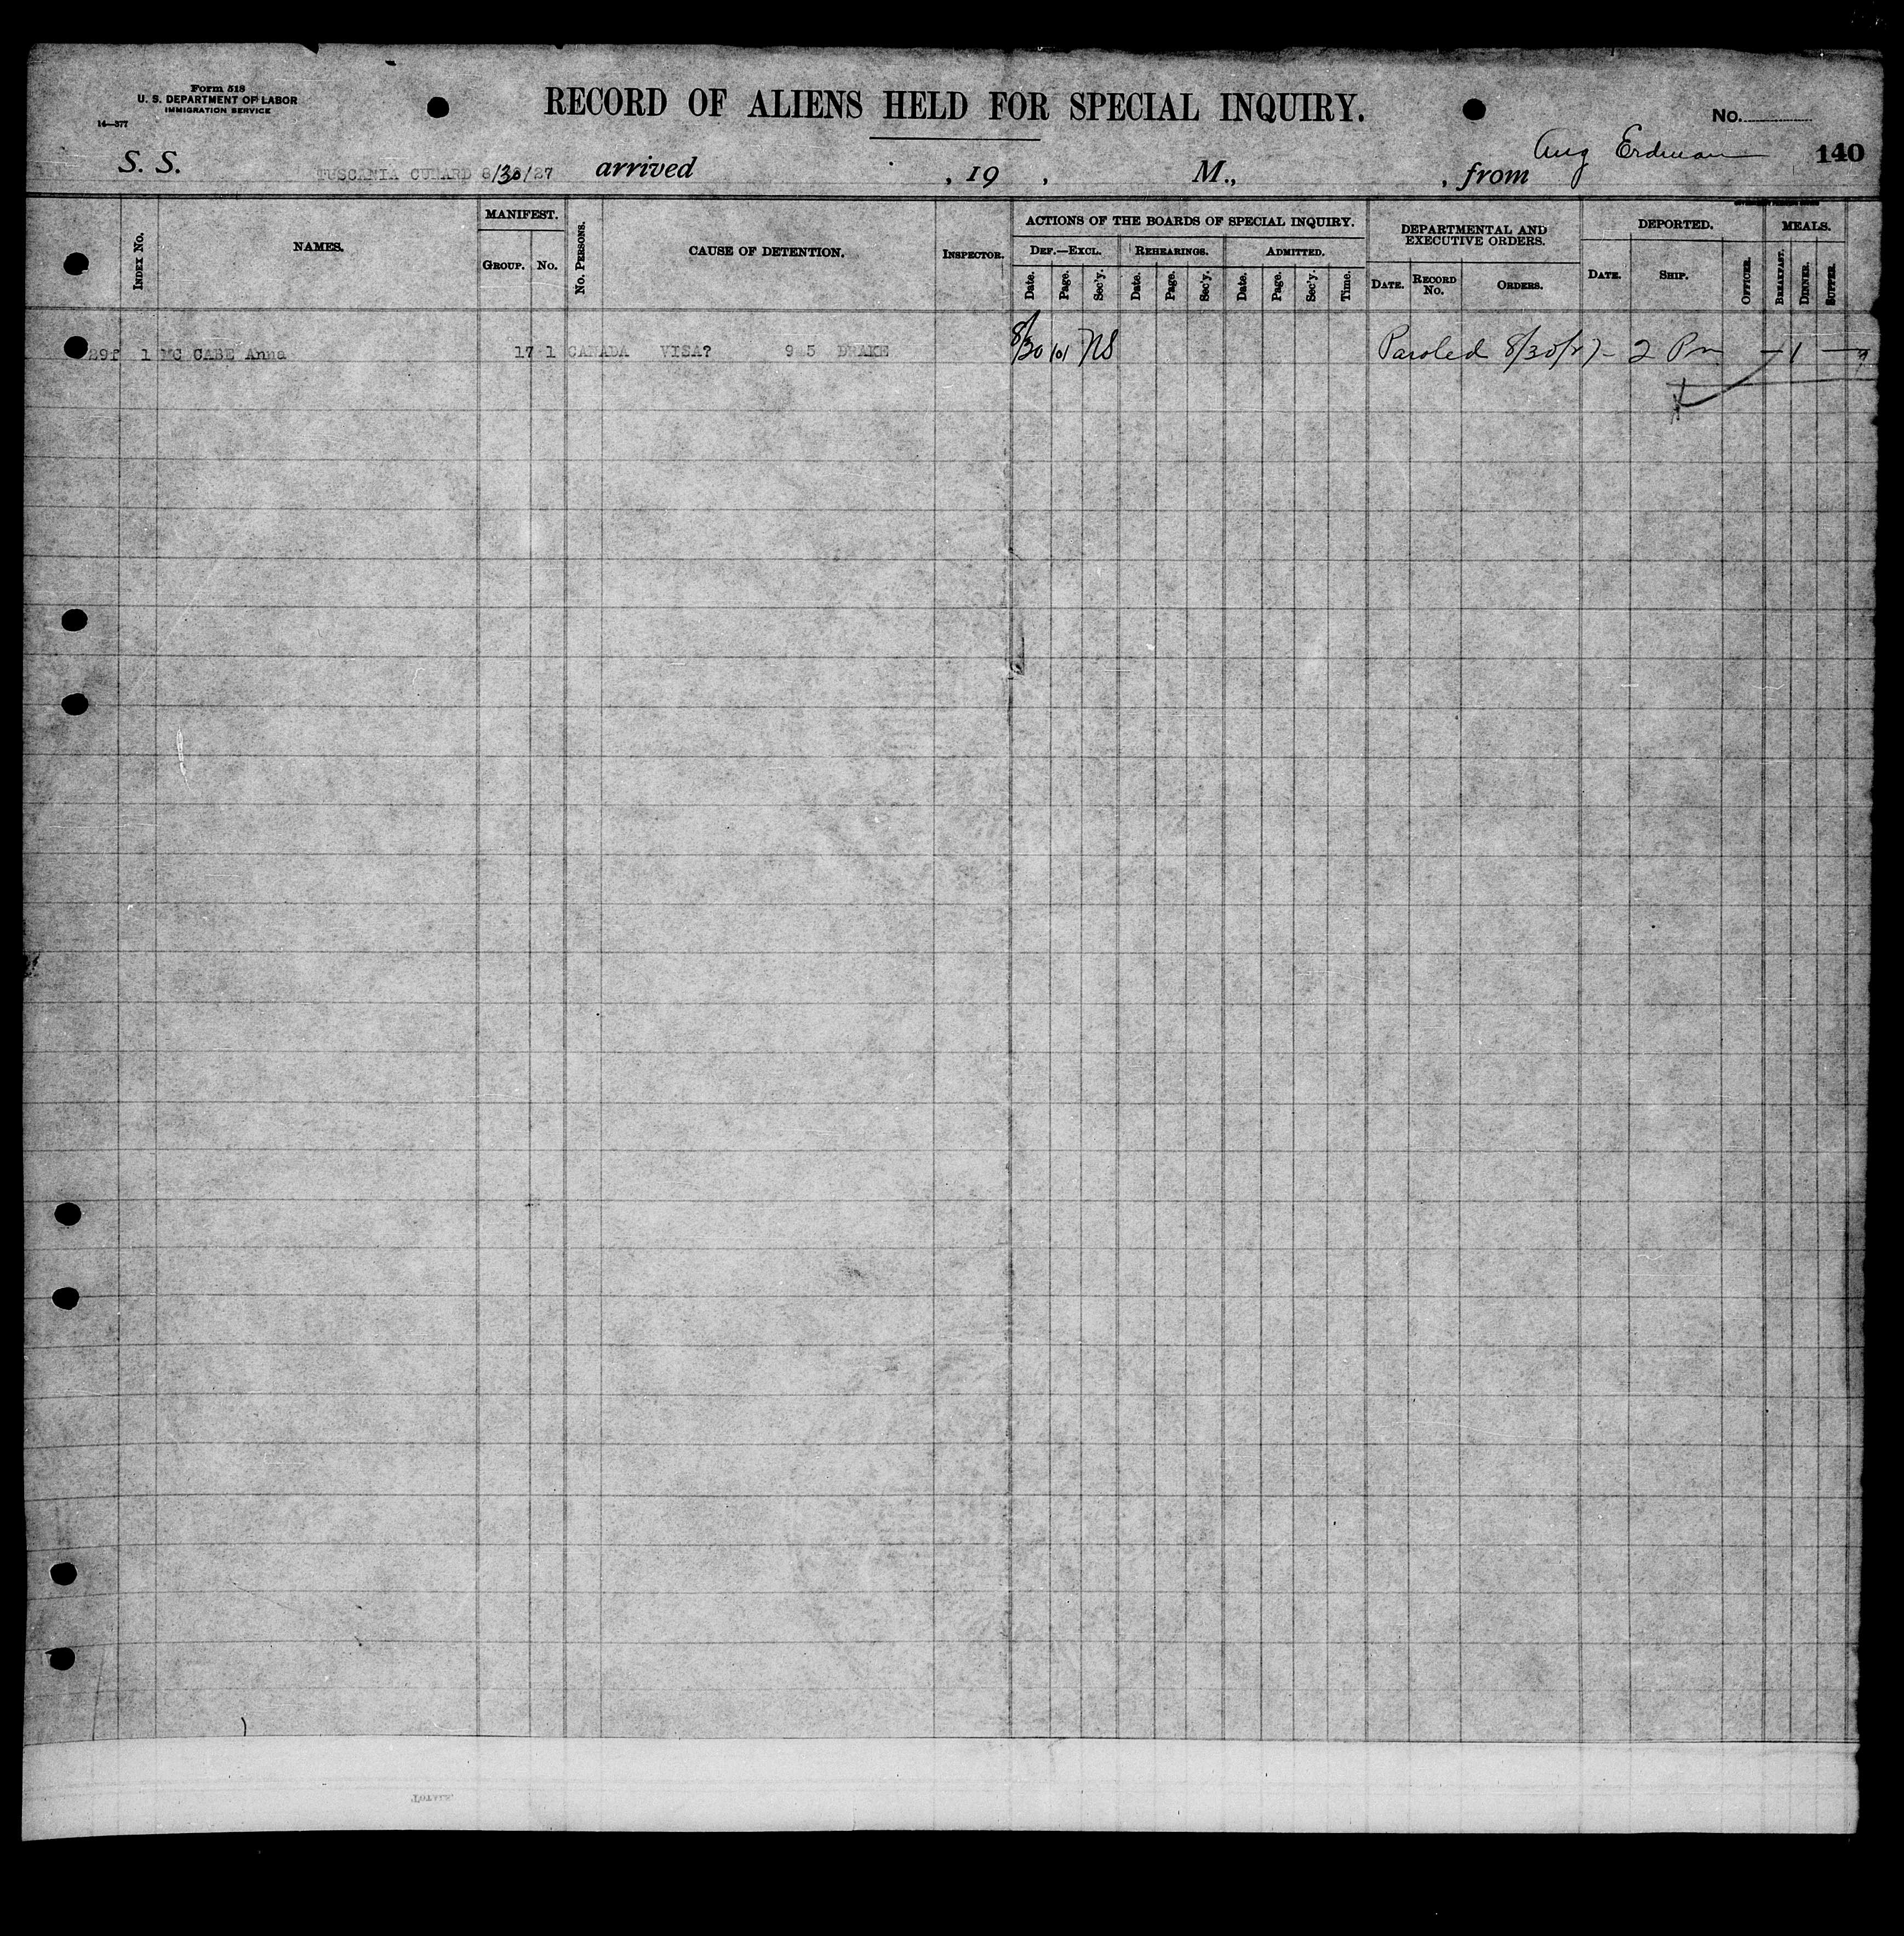 Form 518
U. S. DEPARTMENT OF LABOR
IMMIGRATION SERVICE
14—377
RECORD OF ALIENS HELD FOR SPECIAL INQUIRY.
No.
140
S. S. TUSCANIA CUNARD 8/30/27 arrived , 19 , M., , from Aug Erdman
INDEX NO.
NAMES.
MANIFEST.
GROUP. NO.
NO. PERSONS.
CAUSE OF DETENTION.
INSPECTOR.
ACTIONS OF THE BOARDS OF SPECIAL INQUIRY.
DEF.—EXCL. REHEARINGS. ADMITTED.
Date. Page. Sec'y. Date. Page. Sec'y. Date. Page. Sec'y. Time.
DEPARTMENTAL AND
EXECUTIVE ORDERS.
DATE. RECORD NO. ORDERS.
DEPORTED.
DATE. SHIP. OFFICER.
MEALS.
BREAKFAST. DINNER. SUPPER.
89f 1 MC CABE Anna 17 1 CANADA VISA? 9 5 DRAKE 8/30 101 NS Paroled 8/30/27 - 2 Pm — 1 —
TOTALS